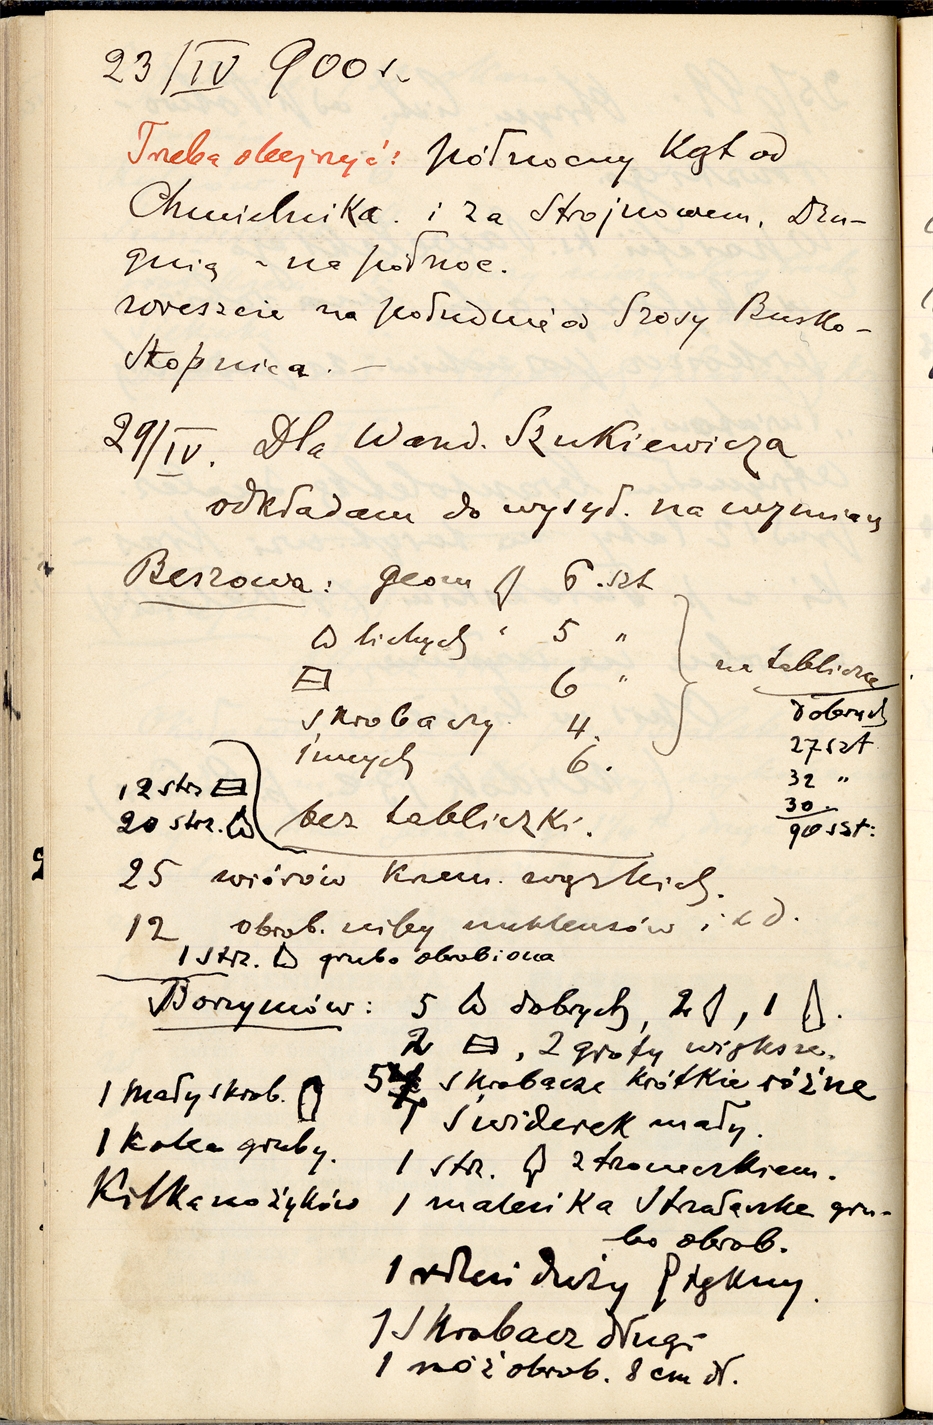 23/IV 900 r.
Trzeba obejrzyć: północny Kąt od
Chmielnika. i za Strojnowem, Dru-
gnią - na północ.
wreszcie na południe od Szosy Busko-
Stopnica. —
29/IV. Dla Wand. Szukiewicza
odkładam do wysył. na wymianę
Beszowa: geom 6. szt
lichych " 5 "
6 "
skrobaczy 4.
innych 6.
na tabliczce
dobrych
27 szt
32 "
30 -
90 szt:
12 strz
20 strz.
bez tabliczki.
25 wiórów krzem. wązkich.
12 obrob. niby nukleusów i t d.
1 strz. grubo obrobiona
Borzymów: 5 dobrych, 2, 1.
2, 2 groty większe.
5 skrobacze krótkie różne
1 Świderek mały.
1 strz. z trzoneczkiem.
1 maleńka Strzałeczka gru-
bo obrob.
1 rdzeń duży Piękny.
1 Skrobacz długi
1 nóż obrob. 8 cm dł.
1 mały skrob.
1 kolec gruby.
Kilka nożyków